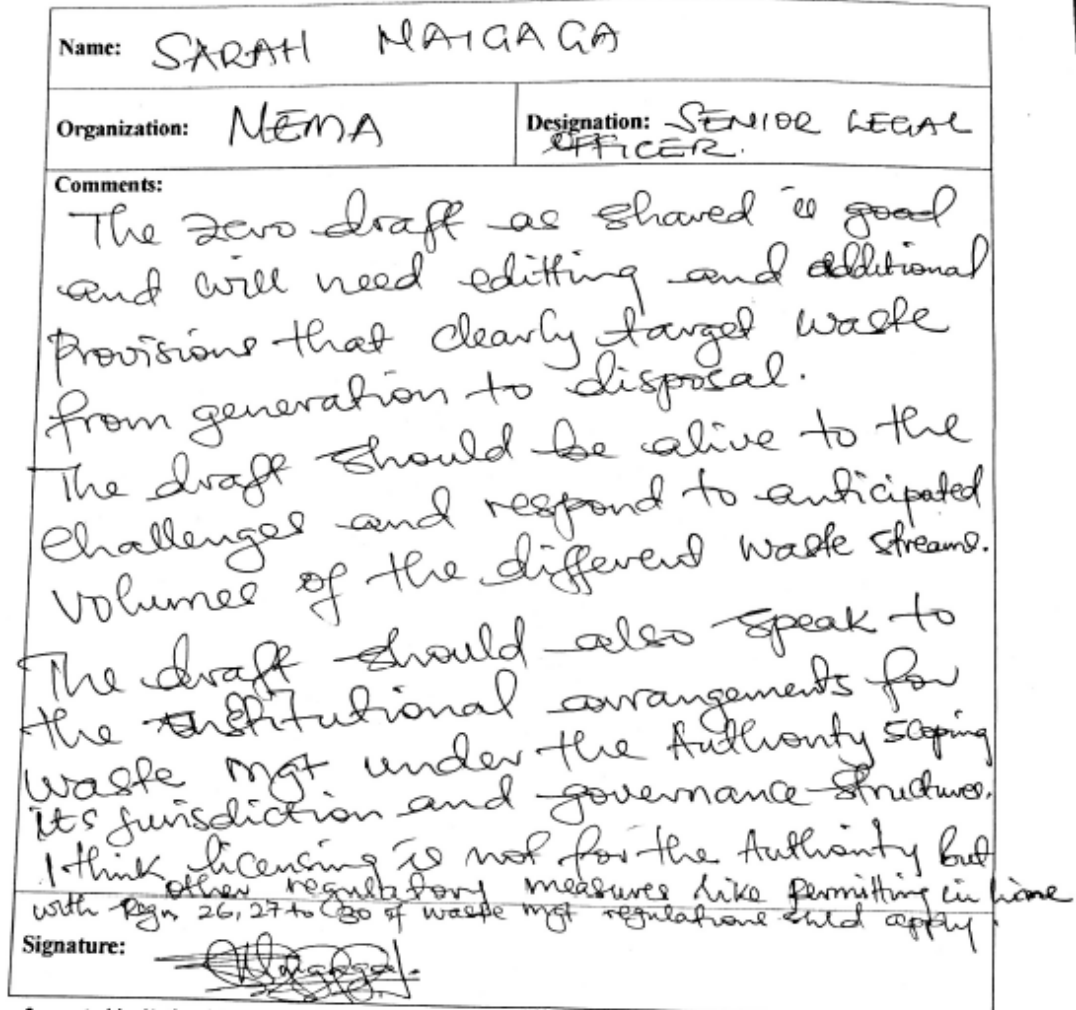 Name: SARAH NAIGAGA
Organization: NEMA
Designation: SENIOR LEGAL
OFFICER.
Comments:
The zero draft as shared is good
and will need editting and additional
provisions that clearly target waste
from generation to disposal.
The draft should be alive to the
challenges and respond to anticipated
volumes of the different waste streams.
The draft should also speak to
the institutional arrangements for
waste mgt under the Authority scoping
its jurisdiction and governance structures.
I think licensing is not for the Authority but
other regulatory measures like permitting in
with Regn 26, 27 to 30 of waste mgt regulations could apply.
Signature: